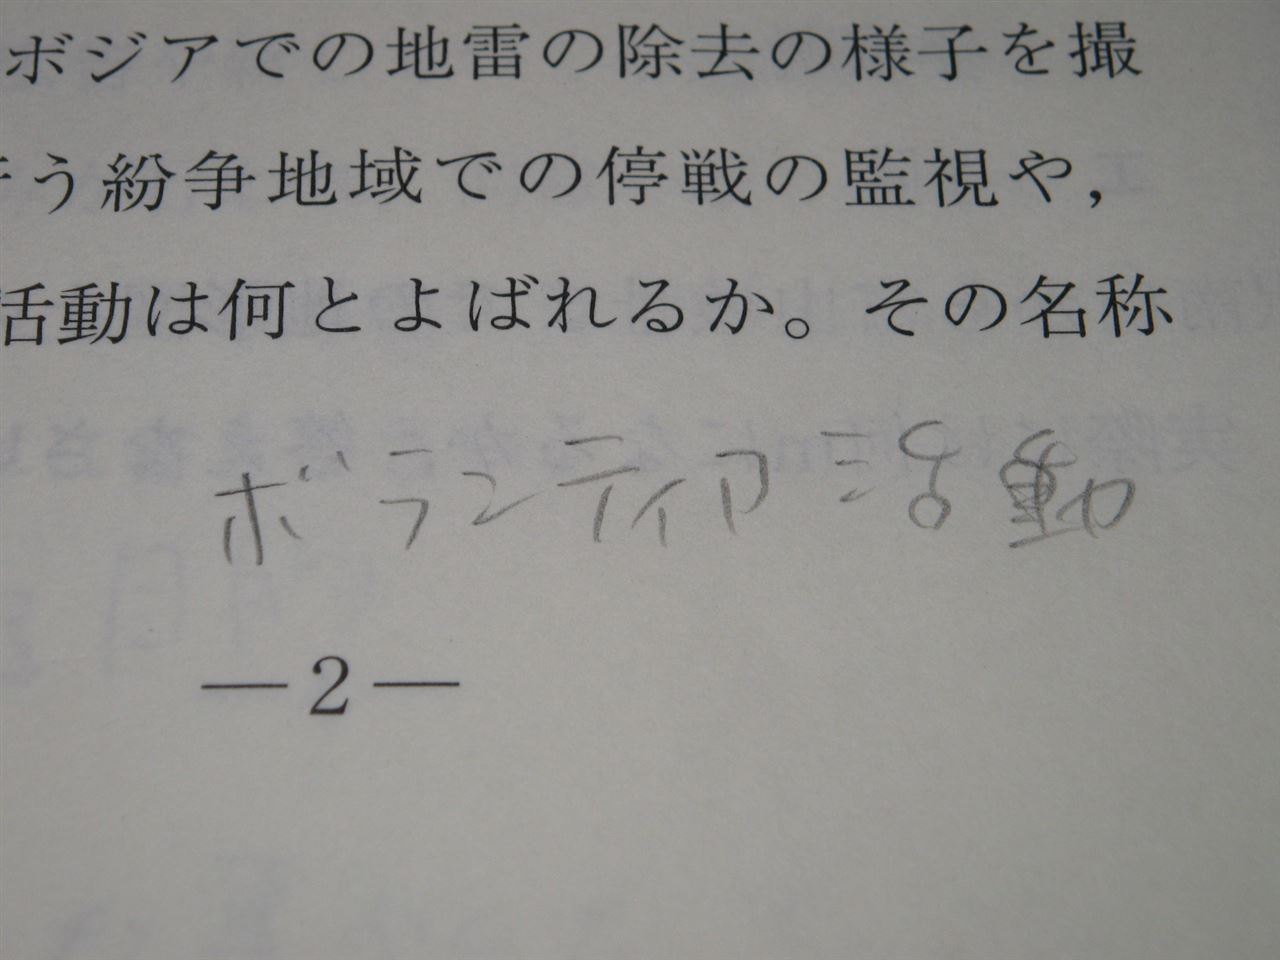 ボジアでの地雷の除去の様子を撮
う紛争地域での停戦の監視や，
活動は何とよばれるか。その名称
ボランティア活動
—2—